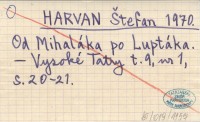 HARVAN Štefan 1970.
Od Mihaláka po Luptáka.
– Vysoké Tatry t.9, nr 1,
s. 20-21.